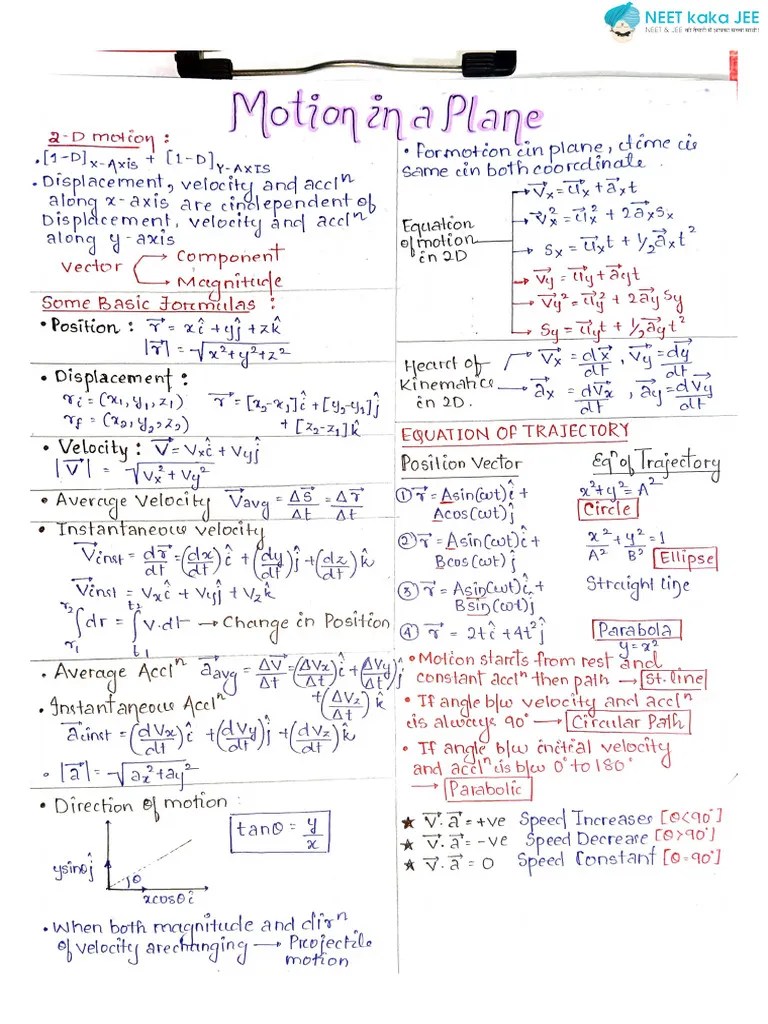 NEET kaka JEE
Motion in a Plane
2-D motion :
• [1-D]x-Axis + [1-D]Y-AXIS
• Displacement, velocity and acclⁿ
along x-axis are independent of
Displacement, velocity and acclⁿ
along y-axis
vector
Component
Magnitude
Some Basic Formulas :
• Position : r⃗ = xî + yĵ + zk̂
|r⃗| = √(x²+y²+z²)
• Displacement :
rᵢ = (x₁, y₁, z₁) r⃗ = [x₂-x₁]î + [y₂-y₁]ĵ
r_f = (x₂, y₂, z₂) + [z₂-z₁]k̂
• Velocity : V⃗ = Vxî + Vyĵ
|V⃗| = √(Vx² + Vy²)
• Average Velocity V⃗avg = ΔS⃗/Δt = Δr⃗/Δt
• Instantaneous velocity
V⃗inst = dr⃗/dt = (dx/dt)î + (dy/dt)ĵ + (dz/dt)k̂
V⃗inst = Vxî + Vyĵ + Vzk̂
∫_{r₁}^{r₂} dr = ∫_{t₁}^{t₂} v.dt → Change in Position
• Average Acclⁿ a⃗avg = ΔV⃗/Δt = (ΔVx/Δt)î + (ΔVy/Δt)ĵ
+ (ΔVz/Δt)k̂
• Instantaneous Acclⁿ
a⃗inst = (dVx/dt)î + (dVy/dt)ĵ + (dVz/dt)k̂
• |a⃗| = √(ax² + ay²)
• Direction of motion :
tanθ = y/x
ysinθĵ
θ
xcosθî
• When both magnitude and dirⁿ
of velocity are changing → Projectile
motion
• For motion in plane, time is
same in both coordinate.
Equation
of motion
in 2D
V⃗x = u⃗x + a⃗xt
V⃗x² = u⃗x² + 2a⃗xSx
Sx = u⃗xt + 1/2 a⃗xt²
V⃗y = u⃗y + a⃗yt
V⃗y² = u⃗y² + 2a⃗y Sy
Sy = u⃗yt + 1/2 a⃗yt²
Heart of
Kinematics
in 2D.
V⃗x = dx⃗/dt , V⃗y = dy⃗/dt
a⃗x = dV⃗x/dt , a⃗y = dV⃗y/dt
EQUATION OF TRAJECTORY
Position Vector Eqⁿ of Trajectory
① r⃗ = Asin(ωt)î + x²+y² = A²
Acos(ωt)ĵ Circle
② r⃗ = Asin(ωt)î + x²/A² + y²/B² = 1
Bcos(ωt)ĵ Ellipse
③ r⃗ = Asin(ωt)î + Straight line
Bsin(ωt)ĵ
④ r⃗ = 2tî + 4t²ĵ Parabola
y = x²
• Motion starts from rest and
constant acclⁿ then path → St. line
• If angle b/w velocity and acclⁿ
is always 90° → Circular Path
• If angle b/w initial velocity
and acclⁿ is b/w 0° to 180°
→ Parabolic
★ v⃗.a⃗ = +ve Speed Increases [θ<90°]
★ v⃗.a⃗ = -ve Speed Decrease [θ>90°]
★ v⃗.a⃗ = 0 Speed Constant [θ=90°]